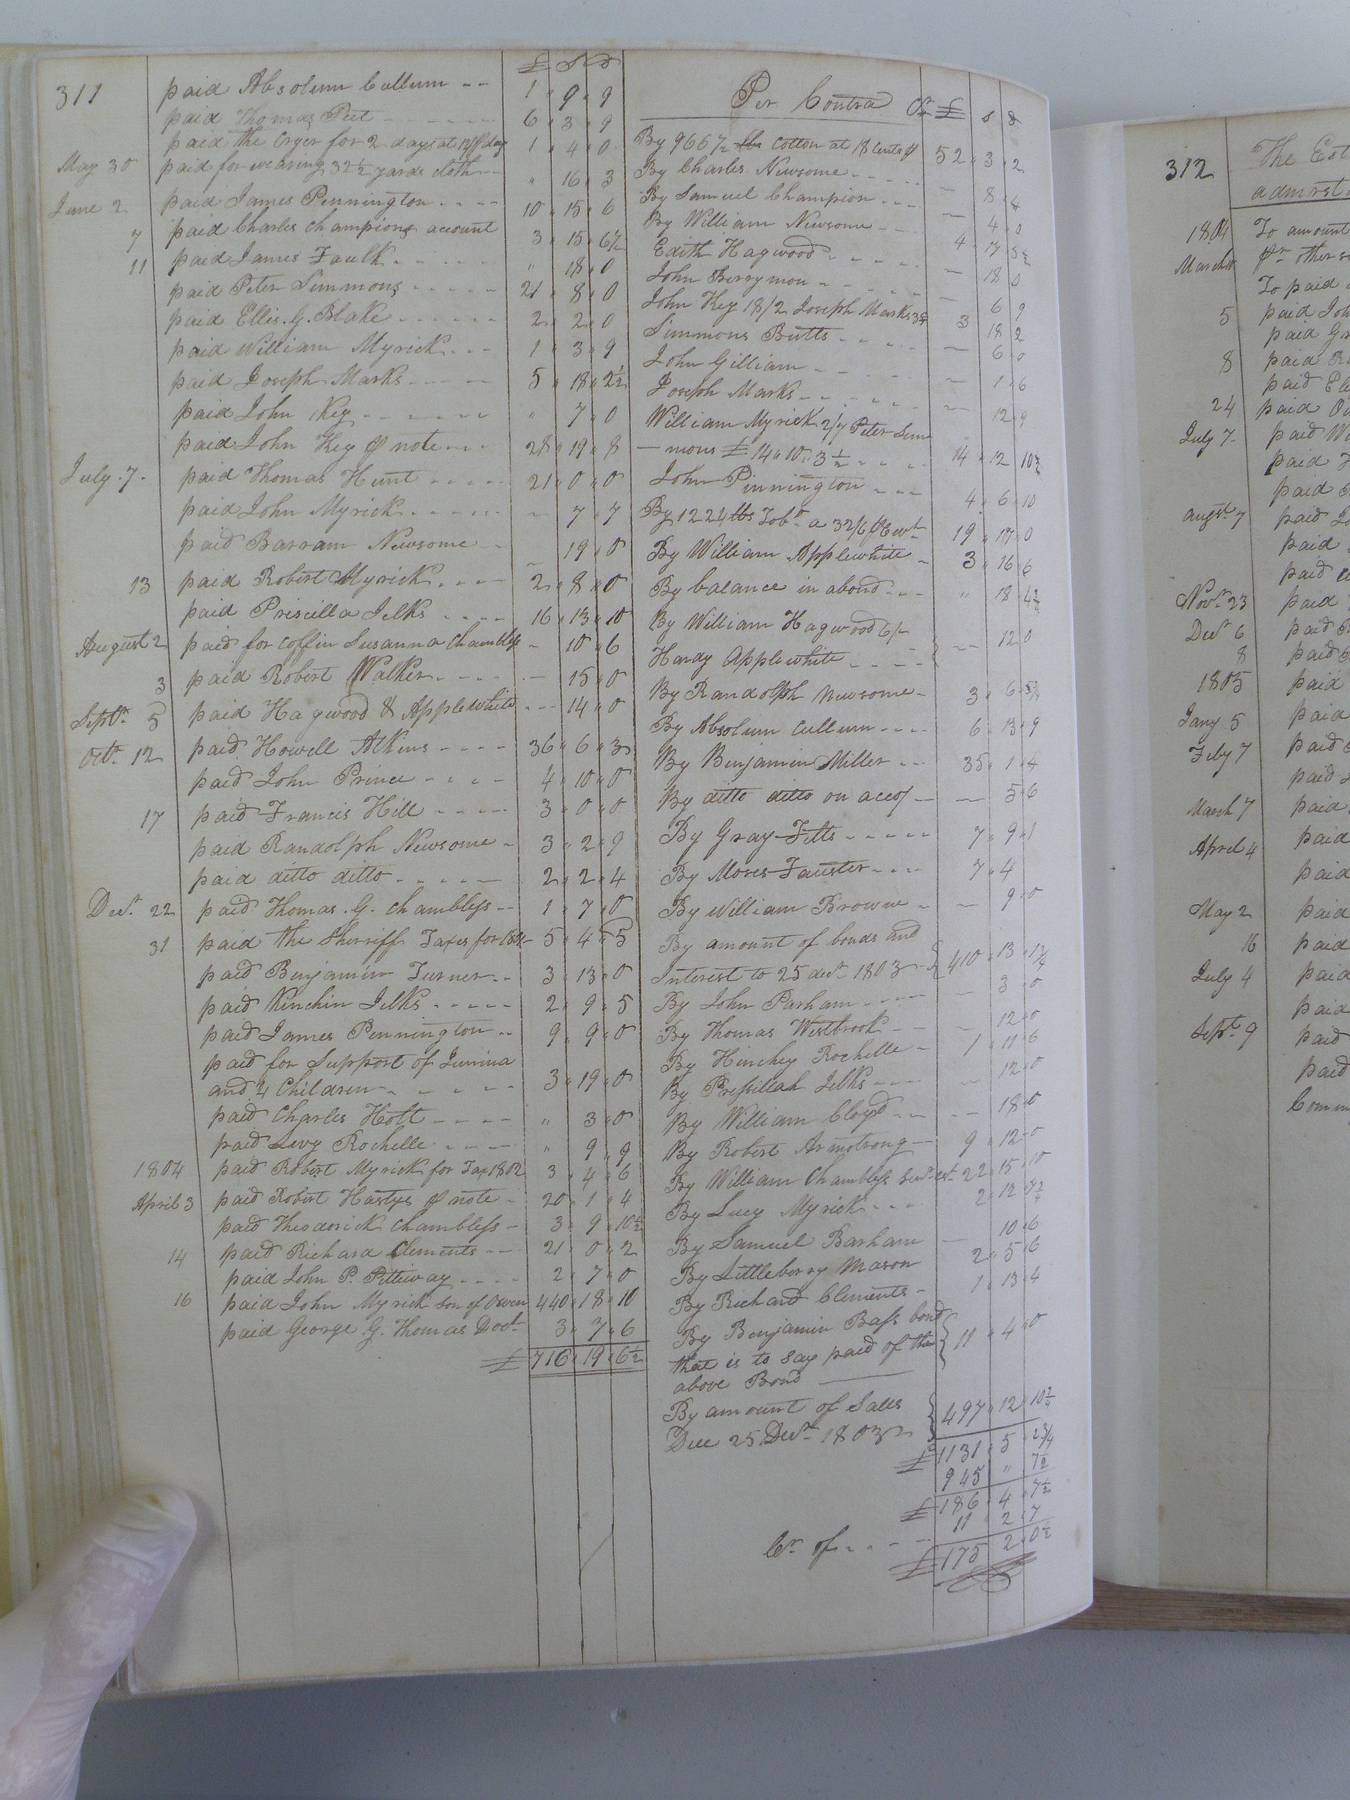 311
£ S D
paid Absolum Cullum -- 1 " 9 " 9
paid Thomas Peet - - - - 6 " 3 " 9
paid the Cryer for 2 days at 12/ day 1 " 4 " 0
May 30 paid for weaving 32 1/2 yards cloth -- " 16 " 3
June 2 paid James Pennington - - - - 10 " 15 " 6
7 paid Charles Champions account 3 " 15 " 6 1/2
11 paid James Faulk - - - - " 18 " 0
paid Peter Simmons - - - - 21 " 8 " 0
paid Ellis. G. Blake - - - - 2 " 2 " 0
paid William Myrick - - - 1 " 3 " 9
paid Joseph Marks - - - - 5 " 18 " 2 1/2
paid John Key - - - - " 7 " 0
paid John Key note - - - 28 " 19 " 8
July 7 paid Thomas Hunt - - - - 21 " 0 " 0
paid John Myrick - - - - - 7 " 7
paid Barram Newsome - - - 19 " 0
13 paid Robert Myrick - - - 2 " 8 " 0
paid Priscilla Jelks - - - - 16 " 13 " 10
August 2 paid for coffin Susanna Chambless - 10 " 6
3 paid Robert Walker - - - - - 15 " 0
Septr 5 paid Hagwood & Applewhite - - - 14 " 0
Octr 12 paid Howell Atkins - - - - 36 " 6 " 3
paid John Prince - - - - 4 " 10 " 0
17 paid Francis Hill - - - - 3 " 0 " 0
paid Randolph Newsome - 3 " 2 " 9
paid ditto ditto - - - - - 2 " 2 " 4
Decr 22 paid Thomas. G. Chambless -- 1 " 7 " 0
31 paid the Sherriff Taxes for 5 " 4 " 5
paid Benjamin Turner - - 3 " 13 " 0
paid Kinchin Jelks - - - - - 2 " 9 " 5
paid James Pennington -- 9 " 9 " 0
paid for Support of
and 4 Children - - - - - 3 " 19 " 0
paid Charles Holt - - - - " 3 " 0
paid Levy Rochelle - - - - " 9 " 9
1804 paid Robert Myrick for Tax 1802 3 " 4 " 6
April 3 paid Robert Hastys note - 20 " 1 " 4
paid Theoderick Chambless - 3 " 9 " 10 1/2
14 paid Richard Clements -- 21 " 0 " 2
paid John P. Pettway - - - - 2 " 7 " 0
16 paid John Myrick son of Owen 440 " 18 " 10
paid George G. Thomas Doct. 3 " 7 " 6
£ 716 " 19 " 6 1/2
Per Contra Cr £ s d
By 966 1/2 Cotton at 18 Cents 52 " 3 " 2
By Charles Newsome - - - - - 8 " 4
By Samuel Champion - - - - 4 " 0
By William Newsome - - 4 " 17 " 5 1/2
Edith Hagwood - - - - - - 18 " 0
John Berrymon - - - - - 6 " 9
John Key 18/2 Joseph Marks 3 " 18 " 2
Simmons Butts - - - - - 6 " 0
John Gilliam - - - - - 1 " 6
Joseph Marks - - - - - - 12 " 9
William Myrick 2/7 Peter Sim
-mons £ 14 " 10 " 3 1/2 - - - - 14 " 12 " 10 1/2
John Pinnington - - - 4 " 6 " 10
By 1224 lbs Tobo. a 32/6 Cwt 19 " 17 " 0
By William Applewhite - 3 " 16 " 6
By balance in abond - - - " 18 " 4 1/2
By William Hagwood 6/
Hardy Applewhite - - - - } -- 12 " 0
By Randolph Newsome - 3 " 6 "
By Absolum Cullum - - - - 6 " 13 " 9
By Benjamin Miller - - - 35 " 1 " 4
By ditto ditto on acct - -- 5 " 6
By Gray Fitts - - - - - 7 " 9 " 1
By Moses Fauster - - - - 7 " 4
By William Browne - -- 9 " 0
By amount of bonds and
Interest to 25 decr 1803 - { 410 " 13 "
By John Parham - - - - - 3 " 0
By Thomas Westbrook - - 12 " 0
By Hinchey Rochelle - 1 " 11 " 6
By Pressillah Jelks - - - - 12 " 0
By William Cloyd - - -- 18 " 0
By Robert Armstrong - 9 " 12 " 0
By William Chambless 22 " 15 " 10
By Lucy Myrick - - - 2 " 12 "
By Samuel Barham - 10 " 6
By Littleberry Mason 2 " 5 " 6
By Richard Clements - 1 " 13 " 4
By Benjamin Bass bond
that is to say paid of the
above Bond { 11 " 4 " 0
By amount of Sales
Due 25 Decr 1803 { 497 " 12 "
£ 1131 " 5 " 2 3/4
945 "
£ 186 " 4 " 7 1/2
11 " 2 " 7
Cr of - - - - £ 175 2 " 0 1/2
312
The Est
admrst
1804 To amount
March other
To paid
5 paid Joh
paid Gr
8 paid
paid
24 paid
July 7 paid
paid
paid
augst 7 paid
paid
paid
Novr 23 paid
Decr 6 paid
8 paid
1805 paid
Jany 5 paid
Feby 7 paid
paid
March 7 paid
April 4 paid
paid
May 2 paid
16 paid
July 4 paid
paid
Septr 9 paid
paid
Comm